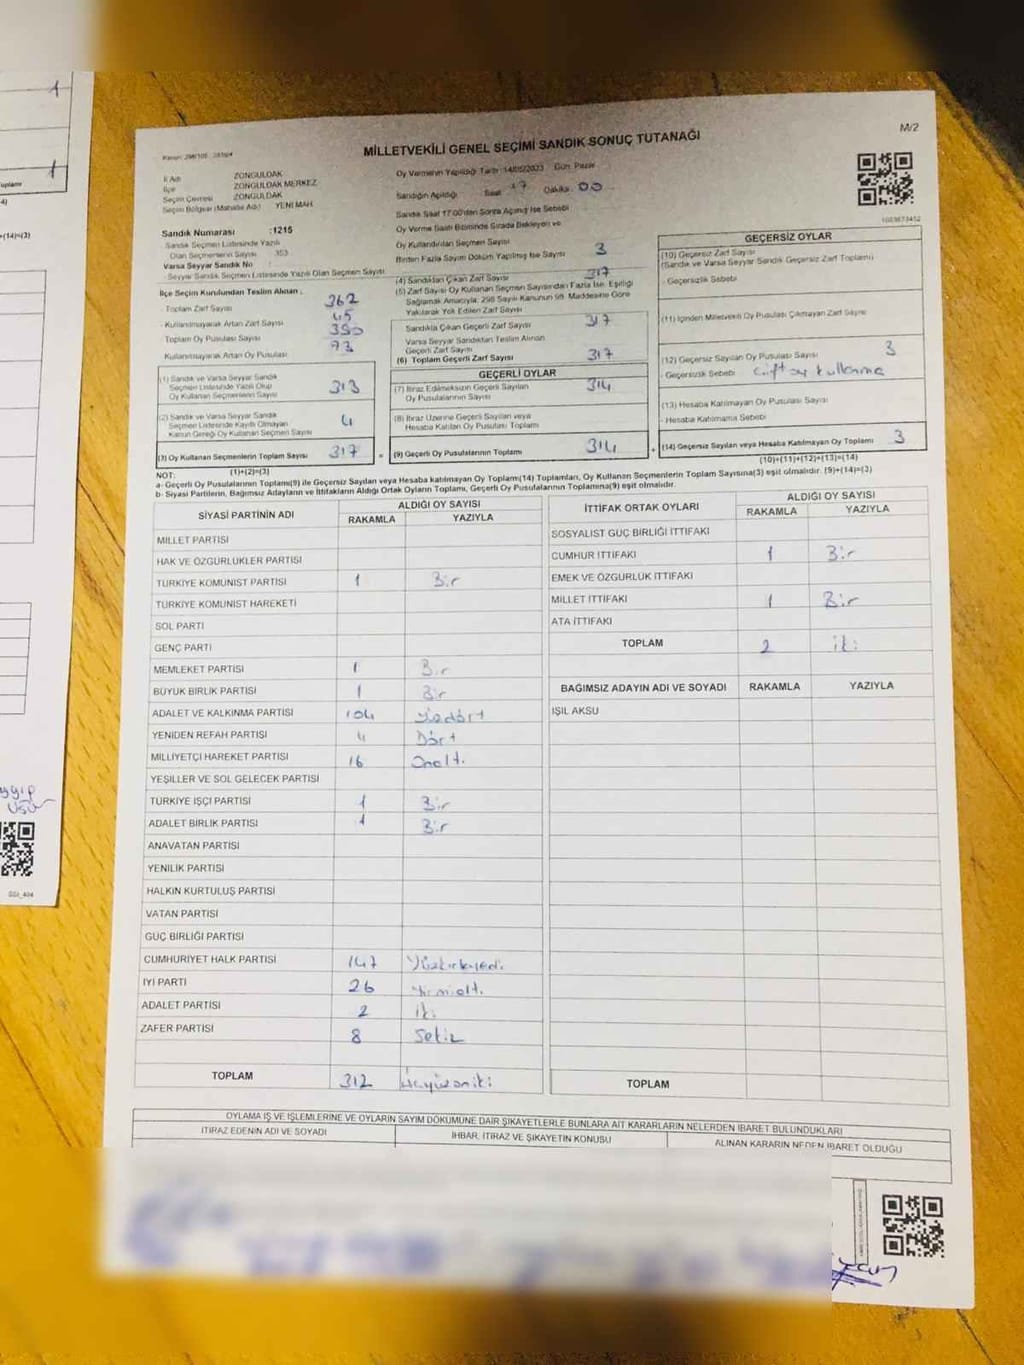 M/2
MİLLETVEKİLİ GENEL SEÇİMİ SANDIK SONUÇ TUTANAĞI
İl Adı ZONGULDAK
İlçe ZONGULDAK MERKEZ
Seçim Çevresi ZONGULDAK
Seçim Bölgesi (Mahalle Adı) YENİ MAH
Sandık Numarası :1215
Sandık Seçmen Listesinde Yazılı
Olan Seçmenlerin Sayısı 353
Varsa Seyyar Sandık No :
Seyyar Sandık Seçmen Listesinde Yazılı Olan Seçmen Sayısı
İlçe Seçim Kurulundan Teslim Alınan ;
Toplam Zarf Sayısı 362
- Kullanılmayarak Artan Zarf Sayısı 45
Toplam Oy Pusulası Sayısı 390
Kullanılmayarak Artan Oy Pusulası 73
(1) Sandık ve Varsa Seyyar Sandık
Seçmen Listesinde Yazılı Olup
Oy Kullanan Seçmenlerin Sayısı 313
(2) Sandık ve Varsa Seyyar Sandık
Seçmen Listesinde Kayıtlı Olmayan
Kanun Gereği Oy Kullanan Seçmen Sayısı 4
(3) Oy Kullanan Seçmenlerin Toplam Sayısı 317
(1)+(2)=(3)
Oy Vermenin Yapıldığı Tarih :14/05/2023 Gün: Pazar
Sandığın Açıldığı Saat 17 Dakika 00
Sandık Saat 17.00'den Sonra Açılmış İse Sebebi
Oy Verme Saati Bitiminde Sırada Bekleyen ve
Oy Kullandırılan Seçmen Sayısı
Birden Fazla Sayım Döküm Yapılmış İse Sayısı 3
(4) Sandıktan Çıkan Zarf Sayısı 317
(5) Zarf Sayısı Oy Kullanan Seçmen Sayısından Fazla İse, Eşitliği
Sağlamak Amacıyla, 298 Sayılı Kanunun 98. Maddesine Göre
Yakılarak Yok Edilen Zarf Sayısı
Sandıkta Çıkan Geçerli Zarf Sayısı 317
Varsa Seyyar Sandıktan Teslim Alınan
Geçerli Zarf Sayısı
(6) Toplam Geçerli Zarf Sayısı 317
GEÇERLİ OYLAR
(7) İtiraz Edilmeksizin Geçerli Sayılan
Oy Pusulalarının Sayısı 314
(8) İtiraz Üzerine Geçerli Sayılan veya
Hesaba Katılan Oy Pusulası Toplamı
(9) Geçerli Oy Pusulalarının Toplamı 314
1003873452
GEÇERSİZ OYLAR
(10) Geçersiz Zarf Sayısı
(Sandık ve Varsa Seyyar Sandık Geçersiz Zarf Toplamı)
- Geçersizlik Sebebi
(11) İçinden Milletvekili Oy Pusulası Çıkmayan Zarf Sayısı
(12) Geçersiz Sayılan Oy Pusulası Sayısı 3
- Geçersizlik Sebebi Çift oy kullanma
(13) Hesaba Katılmayan Oy Pusulası Sayısı
- Hesaba Katılmama Sebebi
(14) Geçersiz Sayılan veya Hesaba Katılmayan Oy Toplamı 3
(10)+(11)+(12)+(13)=(14)
NOT:
a- Geçerli Oy Pusulalarının Toplamı(9) ile Geçersiz Sayılan veya Hesaba katılmayan Oy Toplam(14) Toplamları, Oy Kullanan Seçmenlerin Toplam Sayısına(3) eşit olmalıdır. (9)+(14)=(3)
b- Siyasi Partilerin, Bağımsız Adayların ve İttifakların Aldığı Ortak Oyların Toplamı, Geçerli Oy Pusulalarının Toplamına(9) eşit olmalıdır.
SİYASİ PARTİNİN ADI ALDIĞI OY SAYISI
RAKAMLA YAZIYLA
MİLLET PARTİSİ
HAK VE ÖZGÜRLÜKLER PARTİSİ
TÜRKİYE KOMÜNİST PARTİSİ 1 Bir
TÜRKİYE KOMÜNİST HAREKETİ
SOL PARTİ
GENÇ PARTİ
MEMLEKET PARTİSİ 1 Bir
BÜYÜK BİRLİK PARTİSİ 1 Bir
ADALET VE KALKINMA PARTİSİ 104 Yüzdört
YENİDEN REFAH PARTİSİ 4 Dört
MİLLİYETÇİ HAREKET PARTİSİ 16 Onaltı
YEŞİLLER VE SOL GELECEK PARTİSİ
TÜRKİYE İŞÇİ PARTİSİ 1 Bir
ADALET BİRLİK PARTİSİ 1 Bir
ANAVATAN PARTİSİ
YENİLİK PARTİSİ
HALKIN KURTULUŞ PARTİSİ
VATAN PARTİSİ
GÜÇ BİRLİĞİ PARTİSİ
CUMHURİYET HALK PARTİSİ 147 Yüzkırkyedi
İYİ PARTİ 26 Yirmialtı
ADALET PARTİSİ 2 İki
ZAFER PARTİSİ 8 Sekiz
TOPLAM 312 Üçyüzoniki
İTTİFAK ORTAK OYLARI ALDIĞI OY SAYISI
RAKAMLA YAZIYLA
SOSYALİST GÜÇ BİRLİĞİ İTTİFAKI
CUMHUR İTTİFAKI 1 Bir
EMEK VE ÖZGÜRLÜK İTTİFAKI
MİLLET İTTİFAKI 1 Bir
ATA İTTİFAKI
TOPLAM 2 iki
BAĞIMSIZ ADAYIN ADI VE SOYADI RAKAMLA YAZIYLA
IŞIL AKSU
TOPLAM
OYLAMA İŞ VE İŞLEMLERİNE VE OYLARIN SAYIM DÖKÜMÜNE DAİR ŞİKAYETLERLE BUNLARA AİT KARARLARIN NELERDEN İBARET BULUNDUKLARI
İTİRAZ EDENİN ADI VE SOYADI İHBAR, İTİRAZ VE ŞİKAYETİN KONUSU ALINAN KARARIN NEDEN İBARET OLDUĞU